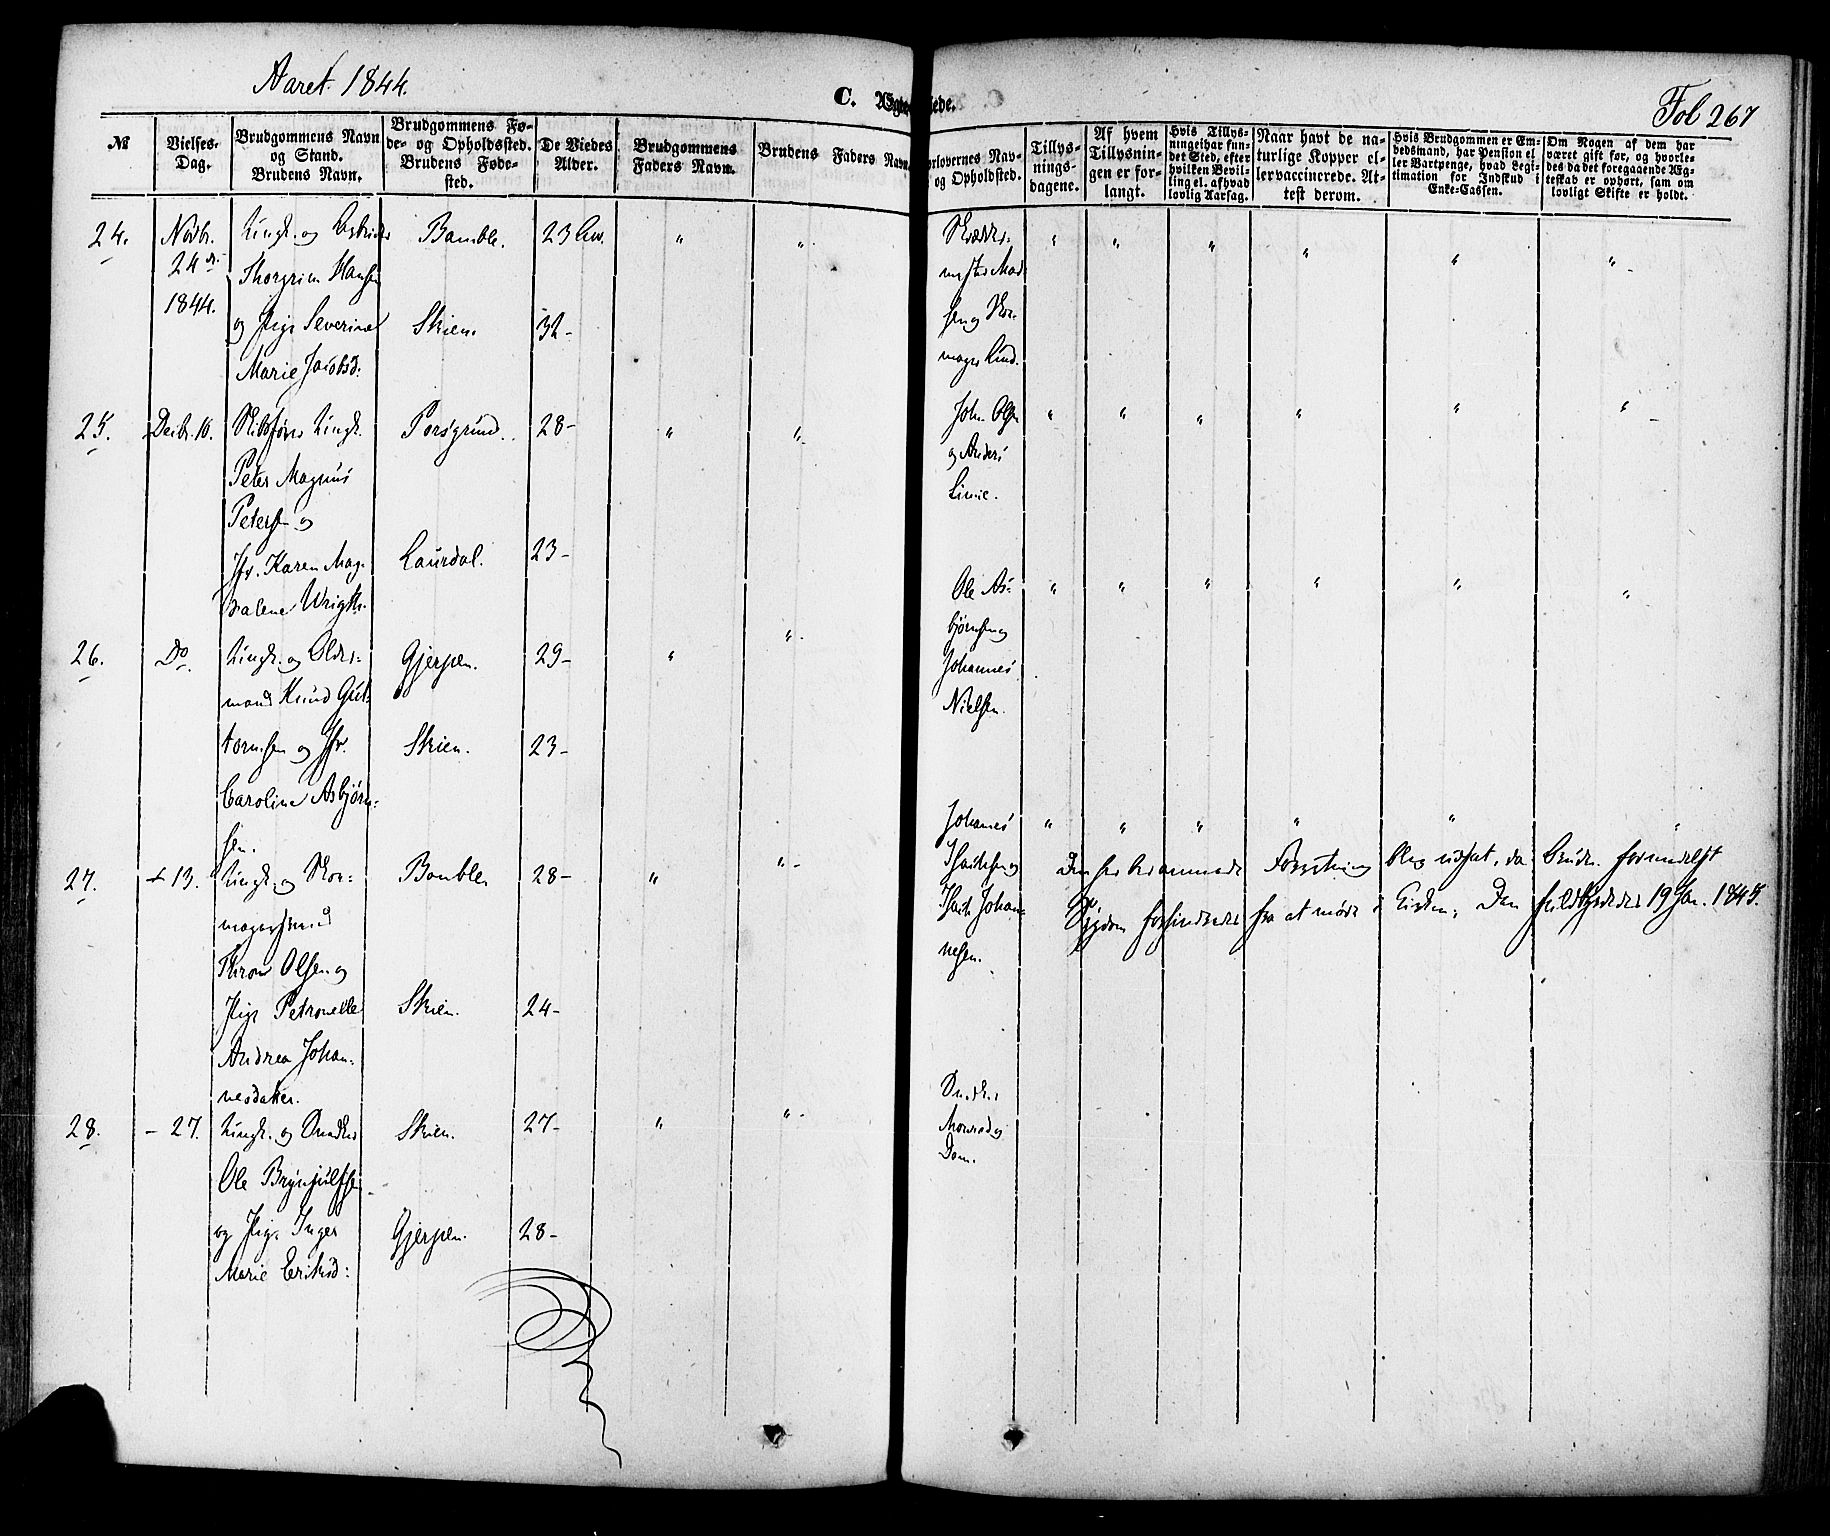 Aaret 1844.
C. Ægteviede.
Fol 267
№
Vielses-Dag.
Brudgommens Navn og Stand. Brudens Navn.
Brudgommens Føde- og Opholdssted. Brudens Fødested.
De Viedes Alder.
Brudgommens Faders Navn.
Brudens Faders Navn.
Forlovernes Navn og Opholdsted.
Tillysningsdagene.
Af hvem Tillysningen er forlangt.
Hvis Tillysning ei har fundet Sted, efter hvilken Bevilling el. afhvad lovlig Aarsag.
Naar havt de naturlige Kopper eller vaccinerede. Attest derom.
Hvis Brudgommen er Embedsmand, har Pension eller Vartpenge, hvad Legitimation for Indskud i Enke-Cassen.
Om Nogen af dem har været gift før, og hvorledes da det foregaaende Ægteskab er ophørt, sam om lovligt Skifte er holdt.
24.
Novbr. 24 1844.
Ungk. og
Thorgrim Hansen
og Pige Severine
Marie Jacobsd:
Bamble.
Skien.
23
32-
mester Mad
sen og Skomager Lund.
25.
Decbr. 10.
Ungk.
Peter Magnus
Peters- og
Jfr. Karen Magdalene Wrigth.
Porsgrund.
Laurdal.
28-
23-
John Olsen
og Anders
Linie.
26.
Do
Ungk. og Oldermand Knud Guttormsen og Jfr.
Caroline Asbjørnsen.
Gjerpen.
Skien.
29-
23-
Ole Asbjørnsen og
Johannes
Nielsen.
27.
13.
Ungk. og Skomagersvend
Thron Olsen og
Pige Petronelle
Andrea Johannesdatter.
Bamble
Skien.
28-
24-
Johanes
Isaksen og
Isak Johannesen.
Den her Forretning blev udsat, da Bruden formedelst
Sygdom forhindredes fra at møde i Kirken. Den fuldbyrdedes 19 Jan. 1845.
28.
- 27.
Ungk. og Snedker
Ole Brynjulfsen
og Pige Inger
Marie Eriksd:
Skien.
Gjerpen.
27-
28-
Snedker
Monrad og
Dom.